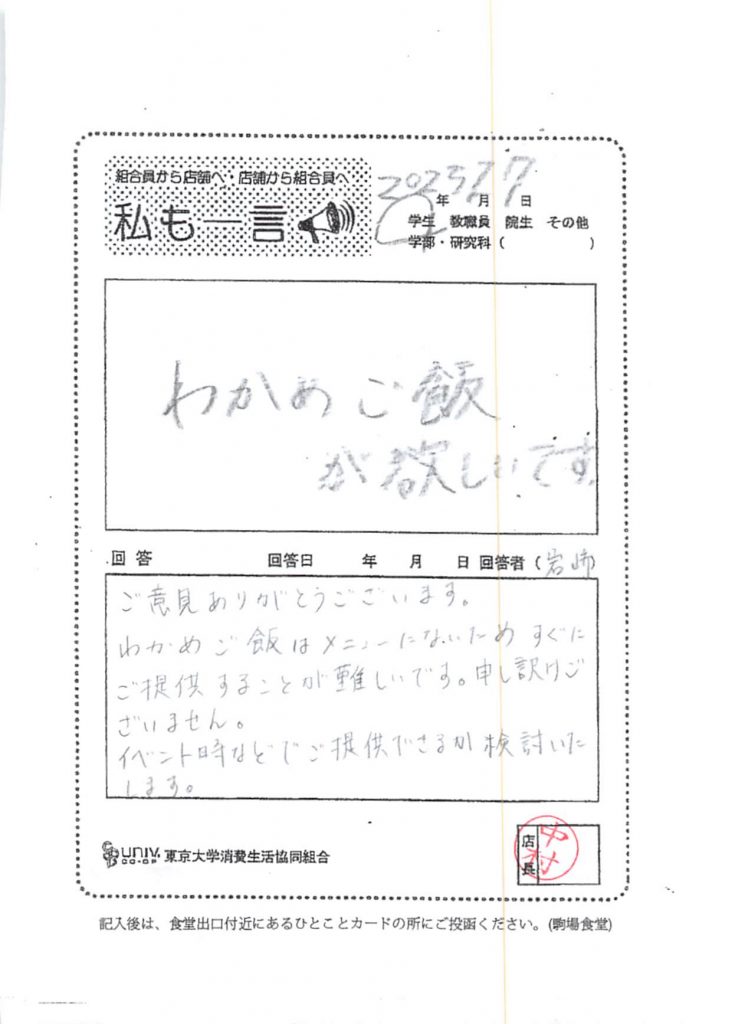 組合員から店舗へ・店舗から組合員へ
私も一言
2023 7 7
年 月 日
学生 教職員 院生 その他
学部・研究科( )
わかめご飯
が欲しいです。
回答 回答日 年 月 日 回答者(岩崎)
ご意見ありがとうございます。
わかめご飯はメニューにないためすぐに
ご提供することが難しいです。申し訳けご
ざいません。
イベント時などでご提供できるか検討いた
します。
UNIV.
CO-OP
東京大学消費生活協同組合
店長
中村
記入後は、食堂出口付近にあるひとことカードの所にご投函ください。(駒場食堂)